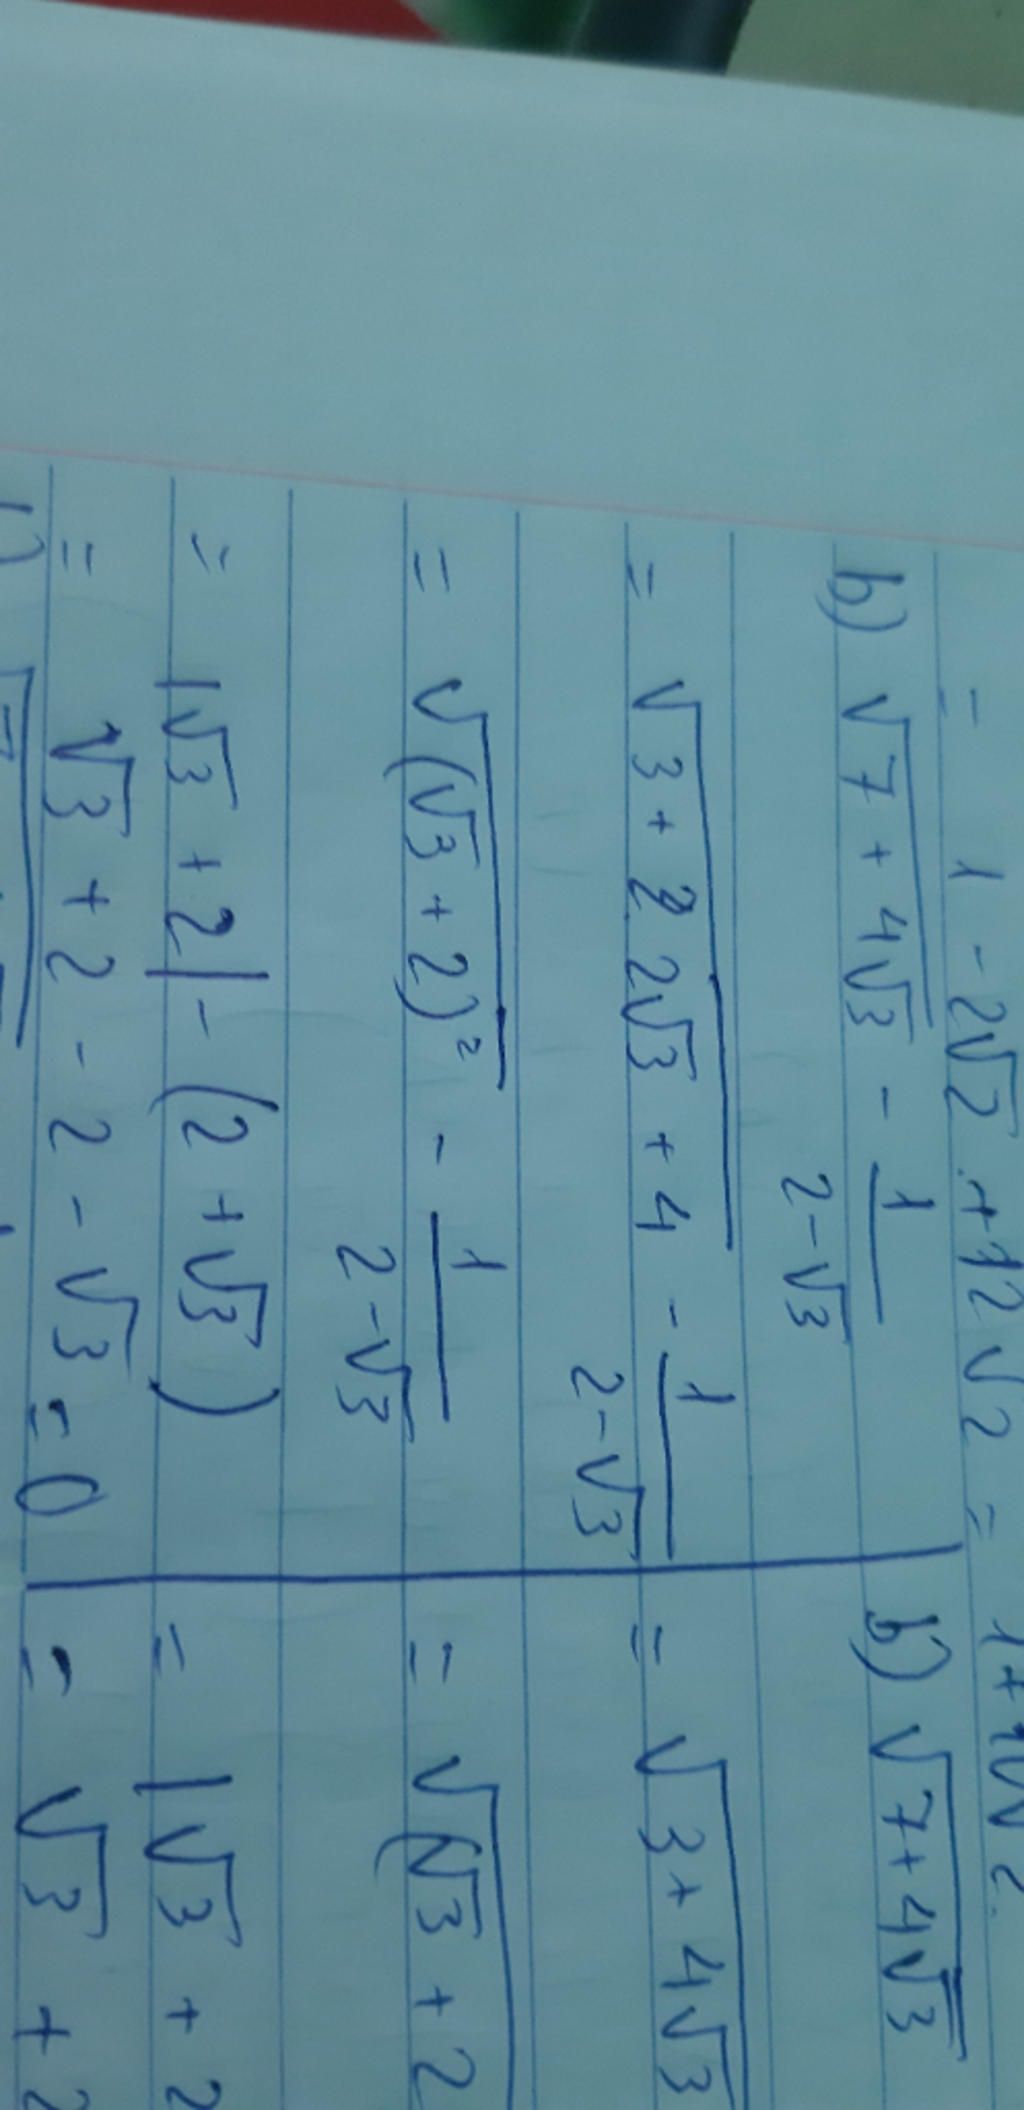 = 1 - 2√2 + 12√2 = 1 + 10√2.
b) √(7 + 4√3) - 1/(2 - √3)
= √(3 + 2.2√3 + 4) - 1/(2 - √3)
= √((√3 + 2)²) - 1/(2 - √3)
= |√3 + 2| - (2 + √3)
= √3 + 2 - 2 - √3 = 0
b) √(7 + 4√3)
= √(3 + 4√3
= √((√3 + 2
= |√3 + 2
= √3 + 2